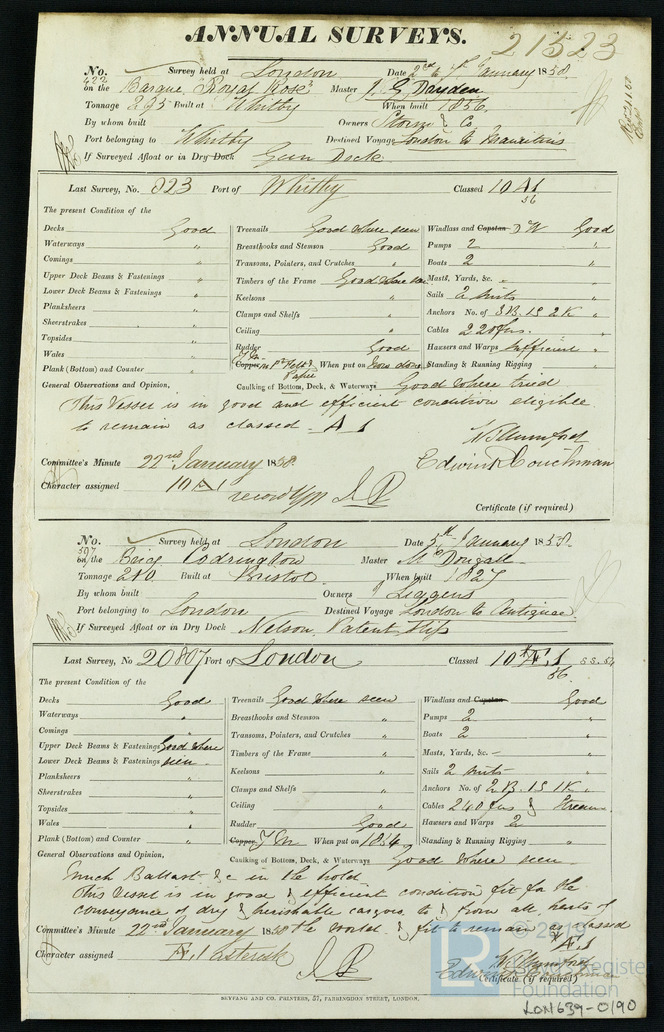 ANNUAL SURVEYS.
21323
No. 422 Survey held at London Date 2nd & 7th January 1858.
on the Barque "Royal Rose" Master J. G. Dryden
Tonnage 295 Built at Whitby When built 1856.
By whom built Owners Storm & Co
Port belonging to Whitby Destined Voyage London to Mauritius
If Surveyed Afloat or in Dry Dock Gun Dock
Last Survey, No. 023 Port of Whitby Classed 10 A1
56
The present Condition of the
Decks Good
Waterways "
Comings "
Upper Deck Beams & Fastenings "
Lower Deck Beams & Fastenings "
Planksheers "
Sheerstrakes "
Topsides "
Wales "
Plank (Bottom) and Counter "
Treenails Good where seen
Breasthooks and Stemson Good
Transoms, Pointers, and Crutches "
Timbers of the Frame Good where seen
Keelsons "
Clamps and Shelfs "
Ceiling "
Rudder Good
Y.M. Copper When put on Now done
Caulking of Bottom, Deck, & Waterways Good where tried
Windlass and Capstan Good
Pumps 2 "
Boats 2 "
Masts, Yards, &c. "
Sails 2 suits "
Anchors No. of 3B. 1S 2K "
Cables 220 fms. "
Hawsers and Warps Sufficient "
Standing & Running Rigging "
General Observations and Opinion,
This Vessel is in good and efficient condition eligible
to remain as classed. A 1
W Mumford
Edwin Couchman
Committee's Minute 22nd January 1858.
Character assigned 10 A 1
record YM
Certificate (if required)
No. 597 Survey held at London Date 5th January 1858.
on the Brig Codrington Master McDougall
Tonnage 210 Built at Bristol. When built 1827
By whom built Owners Liggens
Port belonging to London Destined Voyage London to Antigua
If Surveyed Afloat or in Dry Dock Nelson Patent Slip
Last Survey, No 20807 Port of London Classed 10 Æ.1
56.
The present Condition of the
Decks Good
Waterways "
Comings "
Upper Deck Beams & Fastenings Good where
Lower Deck Beams & Fastenings seen
Planksheers "
Sheerstrakes "
Topsides "
Wales "
Plank (Bottom) and Counter "
Treenails Good where seen
Breasthooks and Stemson "
Transoms, Pointers, and Crutches "
Timbers of the Frame "
Keelsons "
Clamps and Shelfs "
Ceiling "
Rudder Good
Copper, Y M When put on 1854
Caulking of Bottom, Deck, & Waterways Good where seen
Windlass and Capstan Good
Pumps 2 "
Boats 2 "
Masts, Yards, &c. "
Sails 2 suits "
Anchors No. of 2 B. 1S 1K "
Cables 240 fms & Stream
Hawsers and Warps 2 "
Standing & Running Rigging "
General Observations and Opinion,
Much Ballast &c in the hold
This Vessel is in good & efficient condition fit for the
conveyance of dry & perishable cargoes to & from all parts of
the World. & fit to remain as classed
Æ.1
Committee's Minute 22nd January 1858
Character assigned Æ.1 Asterisk
W Mumford
Edwin Couchman
Certificate (if required)
SEYFANG AND CO. PRINTERS, 57, FARRINGDON STREET, LONDON.
LR © 2019
Lloyd's Register
Foundation
LON639-0190